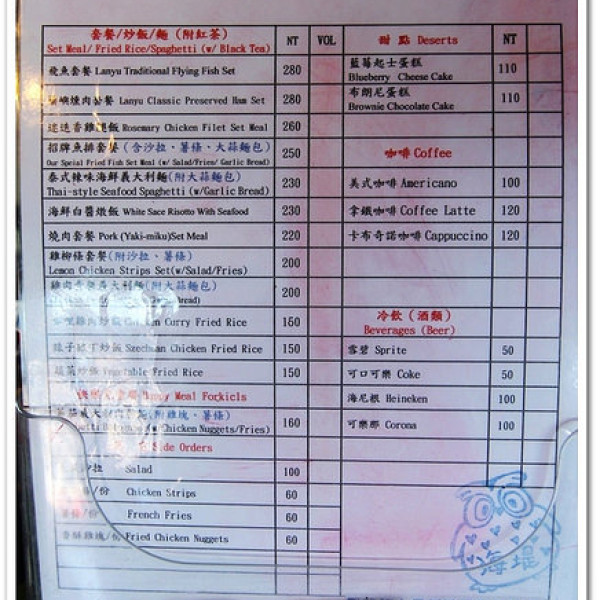 套餐/炒飯/麵（附紅茶）
Set Meal/ Fried Rice/Spaghetti (w/ Black Tea)
NT
VOL
飛魚套餐 Lanyu Traditional Flying Fish Set
280
燻肉套餐 Lanyu Classic Preserved Ham Set
280
迷迭香雞腿飯 Rosemary Chicken Filet Set Meal
260
招牌魚排套餐（含沙拉、薯條、大蒜麵包）
Our Special Fried Fish Set Meal (w/ Salad/Fries/ Garlic Bread)
250
泰式辣味海鮮義大利麵(附大蒜麵包)
Thai-style Seafood Spaghetti (w/Garlic Bread)
230
海鮮白醬燉飯 White Sace Risotto With Seafood
230
燒肉套餐 Pork (Yaki-miku)Set Meal
220
雞柳條套餐(附沙拉、薯條)
Lemon Chicken Strips Set(w/Salad/Fries)
200
大利麵(附大蒜麵包)
Bread)
200
Curry Fried Rice
150
Szechuan Chicken Fried Rice
150
Vegetable Fried Rice
150
Meal
(附雞塊、薯條)
Chicken Nuggets/Fries)
160
Side Orders
沙拉 Salad
100
/份 Chicken Strips
60
薯條/份 French Fries
60
香酥雞塊/份 Fried Chicken Nuggets
60
甜 點 Deserts
NT
藍莓起士蛋糕
Blueberry Cheese Cake
110
布朗尼蛋糕
Brownie Chocolate Cake
110
咖啡 Coffee
美式咖啡 Americano
100
拿鐵咖啡 Coffee Latte
120
卡布奇諾咖啡 Cappuccino
120
冷飲（酒類）
Beverages (Beer)
雪碧 Sprite
50
可口可樂 Coke
50
海尼根 Heineken
100
可樂那 Corona
100
海堤